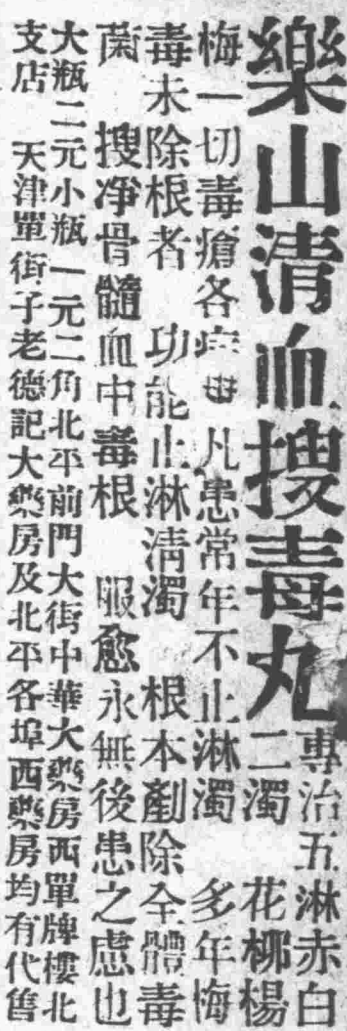 樂山清血搜毒丸
專治五淋赤白
二濁 花柳楊
梅一切毒瘡各病毒凡患常年不止淋濁 多年梅
毒未除根者 功能止淋清濁 根本剷除全體毒
菌 搜凈骨髓血中毒根 服愈永無後患之慮也
大瓶二元小瓶一元二角北平前門大街中華大藥房西單牌樓北
支店 天津單街子老德記大藥房及北平各埠西藥房均有代售